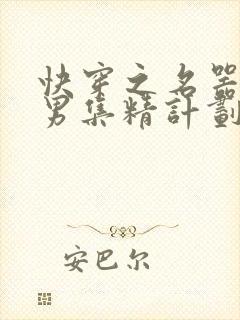 快穿之名器
男集精計劃
安巴尔